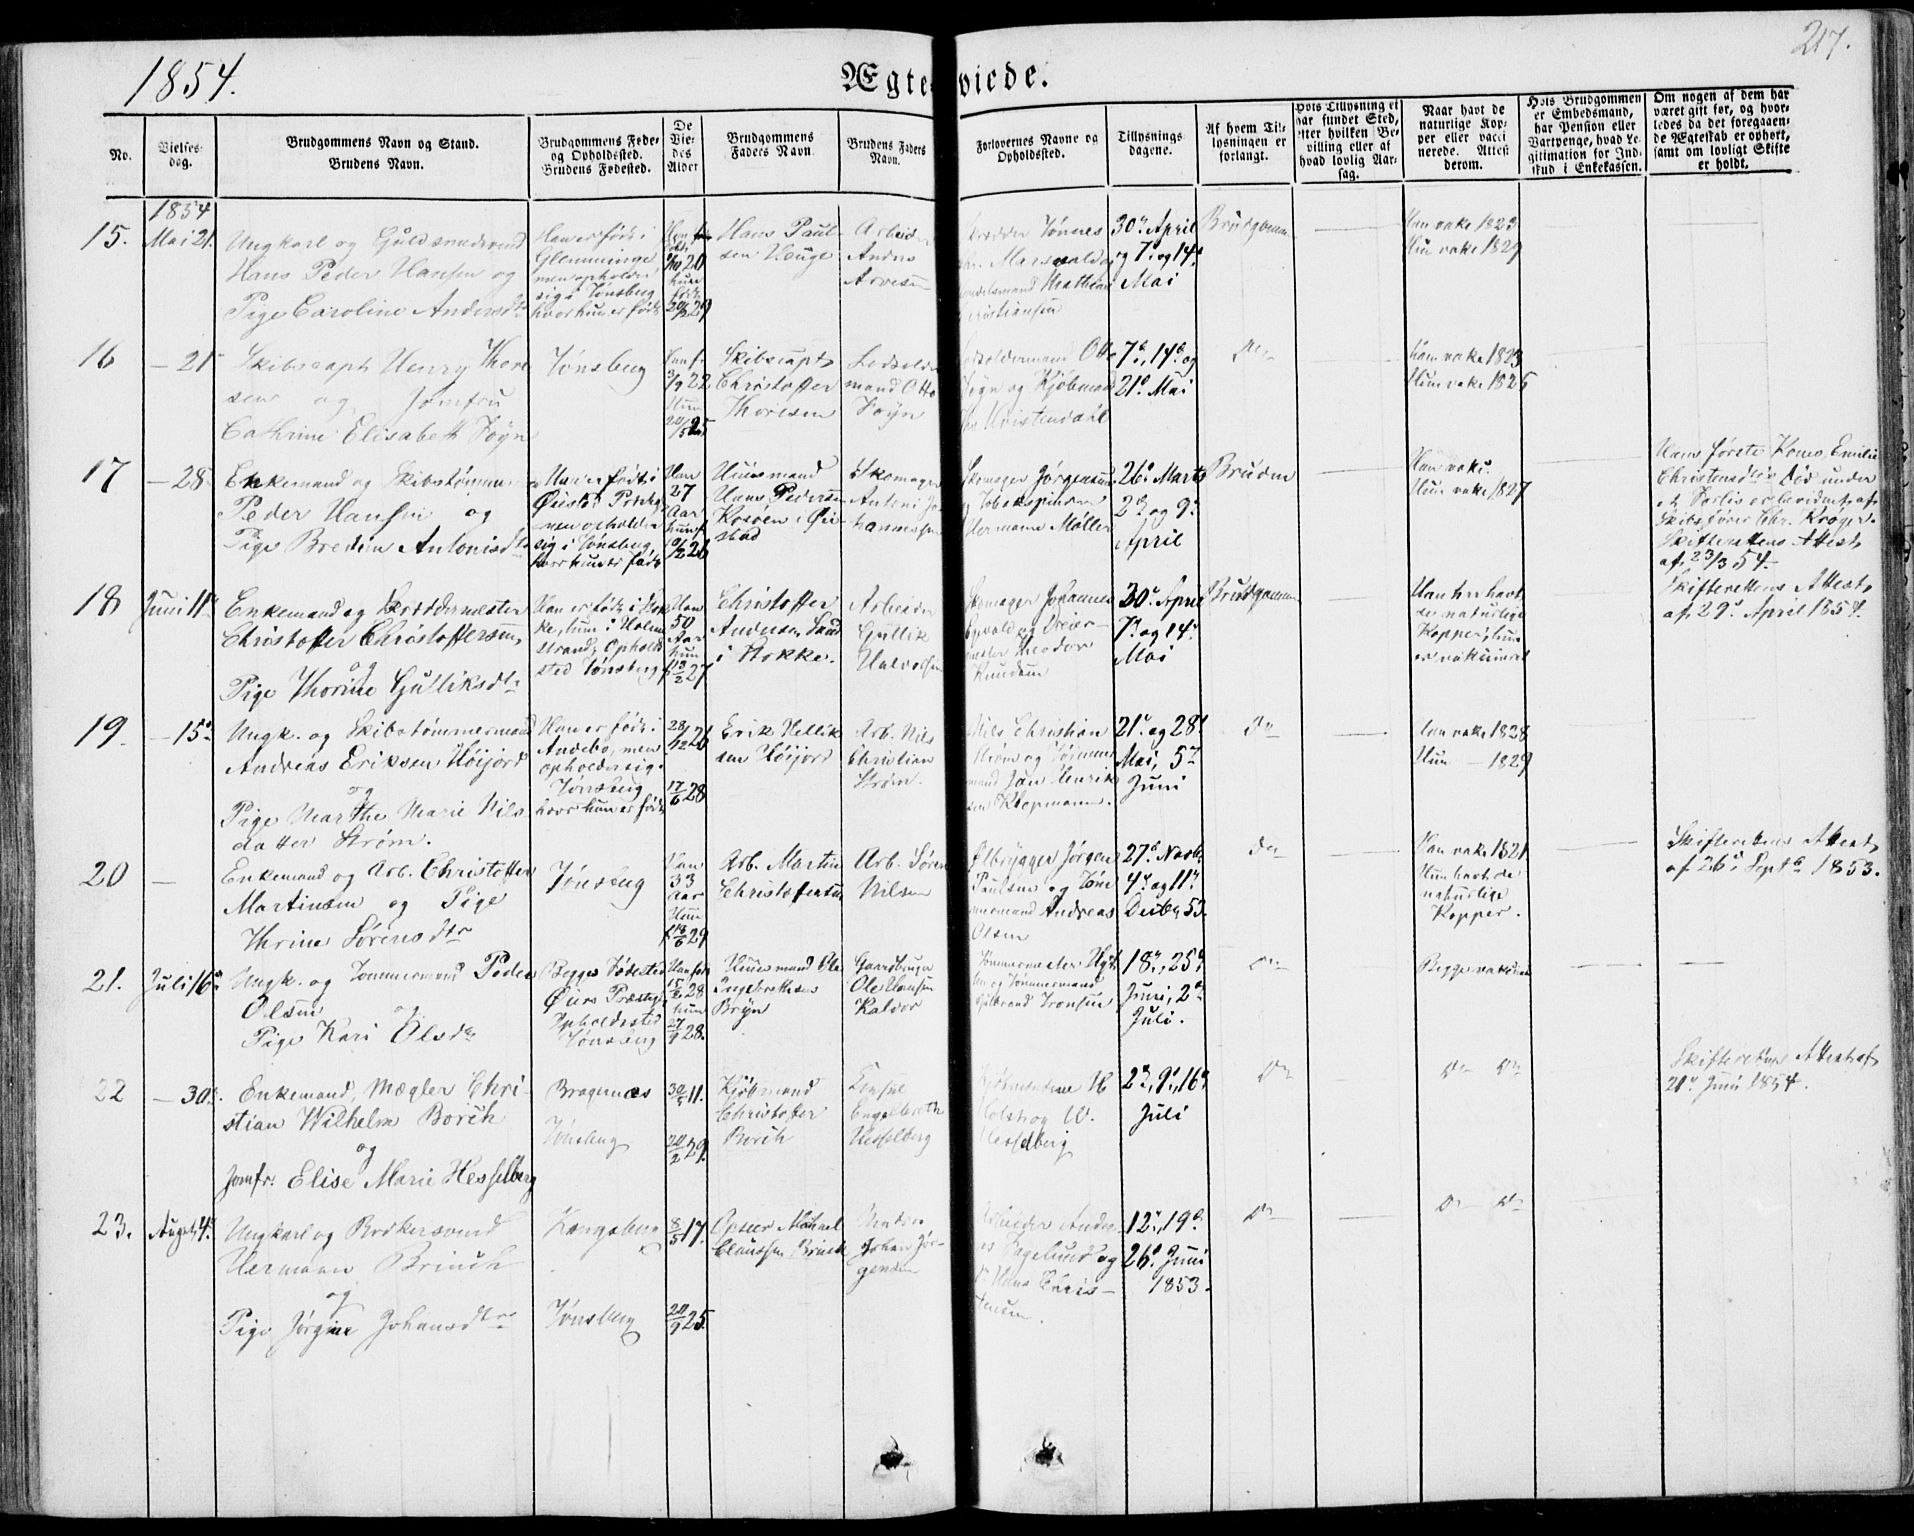 1854.
Ægteviede.
217.
No.
Vielsesdag.
Brudgommens Navn og Stand.
Brudens Navn.
Brudgommens Føde-
og Opholdssted.
Brudens Fødested.
De
Vie-
des
Alder
Brudgommens
Faders Navn
Brudens Faders
Navn.
Forlovernes Navne og
Opholdssted.
Tillysnings
dagene.
Af hvem Til-
lysningen er
forlangt.
Hvis Tillysning ei
har fundet Sted,
efter hvilken Be-
villing eller af
hvad lovlig Aar-
sag.
Naar havt de
naturlige Kop-
per eller vacci
nerede. Attest
derom.
Hvis Brudgommen
er Embedsmand,
har Pension eller
Vartpenge, hvad Le-
gitimation for Ind-
skud i Enkekassen.
Om nogen af dem har
været gift før, og hvor-
ledes da det foregaaen-
de Ægteskab er ophørt,
samt om lovligt Skifte
er holdt.
1854
15.
Mai 21.
Ungkarl og Guldsmedsvend
Hans Peder Hansen og
Pige Caroline Andersdtr
Han er født i
Glemminge
men opholder
sig i Tønsberg
hvor hun er født
Hans Paul-
sen Hauge
Arbeider
Anders
Tønnes
Mathias
Christiansen
30. April
og 7. og 14.
Mai
Brudgommen
Han vakc. 1823
Hun vakc. 1829
16
- 21
Skibscapt. Henry Thore
sen og Jomfru
Cathrine Elisabeth Føyn
Tønsberg
Han f.
3/9 22
Hun
20/5 25
Skibscapt.
Christoffer
Thoresen
Lodsolder
mand Otto
Føyn
Lodsoldermand Otto
Føyn og Kjøbmand
7de, 14de og
21de Mai
do
Han vakc. 1823
Hun vakc. 1826
17
- 28
Enkemand og Skibstømmer
Peder Hansen og
Pige Bredine Antonisdtr
Han er født i
Øiestad Prstgj.
men opholder
sig i Tønsberg,
hvor hun er født
Han
27
Aar
hun f.
10/2 26
Huusmand
Hans Pedersen
i Øie-
stad
Skomager
Antoni Jo-
hannessen
Skomager Jørgensen
Hermann Møller
26. Marts
2den og 9.
April
Bruden
Han vakc.
Hun vakc. 1827
Hans første Kones, Emilie
Christensdtrs Død under
et Forlis er bevidnet af
Skibsfører Chr. Krøger.
Skifterettens Attest
af 23/3 54.
18
Juni 11
Enkemand og Skræddermester
Christoffer Christoffersen,
og
Pige Thorine Gulliksdtr
Han er født i Stok-
ke, hun i Holme
strand, Ophold
sted Tønsberg
Han
50
Aar
hun
13/2 27
Christoffer
Andersen
i Stokke.
Arbeider
Gullik
Halvorsen
Skomager Johannes
Theodor
Knudsen
30. April
7. og 14.
Mai
Brudgommen
Han har havt
de naturlige
Kopper, hun
er vakcineret
Skifterettens Attest
af 29. April 1854.
19.
- 15
Ungk. og Skibstømmermand
Andreas Eriksen Høijord
og
Pige Marthe Marie Nils
datter Strøm.
Han er født i
Andebo, men
opholder sig i
Tønsberg
hvor hun er født
28/12 26
17/6 28
Erik Hellik
sen Høijord
Arb. Nils
Christian
Strøm.
Nils Christian
Strøm og Tømmer
mand Jan Henrik
sen Klopmann.
21. og 28.
Mai, 5te
Juni
do
Han vakc. 1828
Hun — 1829
20
-
Enkemand og Arb. Christoffer
Martinsen og Pige
Thrine Sørensdtr
Tønsberg
Han
33
Aar
Hun
18/6 29
Arb. Martin
Christoffersen
Arb. Søren
Nilsen
Ølbrygger Jørgen
Paulsen og Tøm
mermand Andreas
Olsen
27de Novb.
4. og 11.
Decbr. 53.
do
Han vakc. 1821
Hun havt de
naturlige
Kopper.
Skifterettens Attest
af 26. Septbr 1853.
21.
Juli 16
Ungk. og Tømmermand Peder
Olsen og
Pige Kari Olsdtr
Begges Fødested
Øiers Præstgj.
Opholdssted
Tønsberg
28
hun
27/9 28.
Huusmand Ole
Ingebrethsen
Bryn
Gaardbruger
Ole Hansen
Kalvør
og Tømmermand
18., 25de
Juni, 2den
Juli.
do
Begge vakcin.
22
- 30.
Enkemand, Mægler Chri-
stian Wilhelm Borch
og
Jomfr. Elise Marie Hesselberg
Bragernæs
Tønsberg
30/5 11.
20/2 29.
Kjøbmand
Christoffer
Borch
Consul
Engelbreth
Hesselberg
Kjøbmændene H
Holst og W.
Hesselberg
2den, 9de, 16de
Juli
do
do do
Skifterettens Attest af
21. Juni 1854.
23.
August 4.
Ungkarl og Bødkersvend
Hermann Brinch
og
Pige Jørgine Johansdtr
Kongsberg
Tønsberg
8/5 17.
20/9 25.
Michael
Claussen Brinch
Matros
Johan Jør-
gensen
Arbeider Anders
og
do Hans Chris-
tensen.
12., 19de
26de Juni
1853.
do
do do